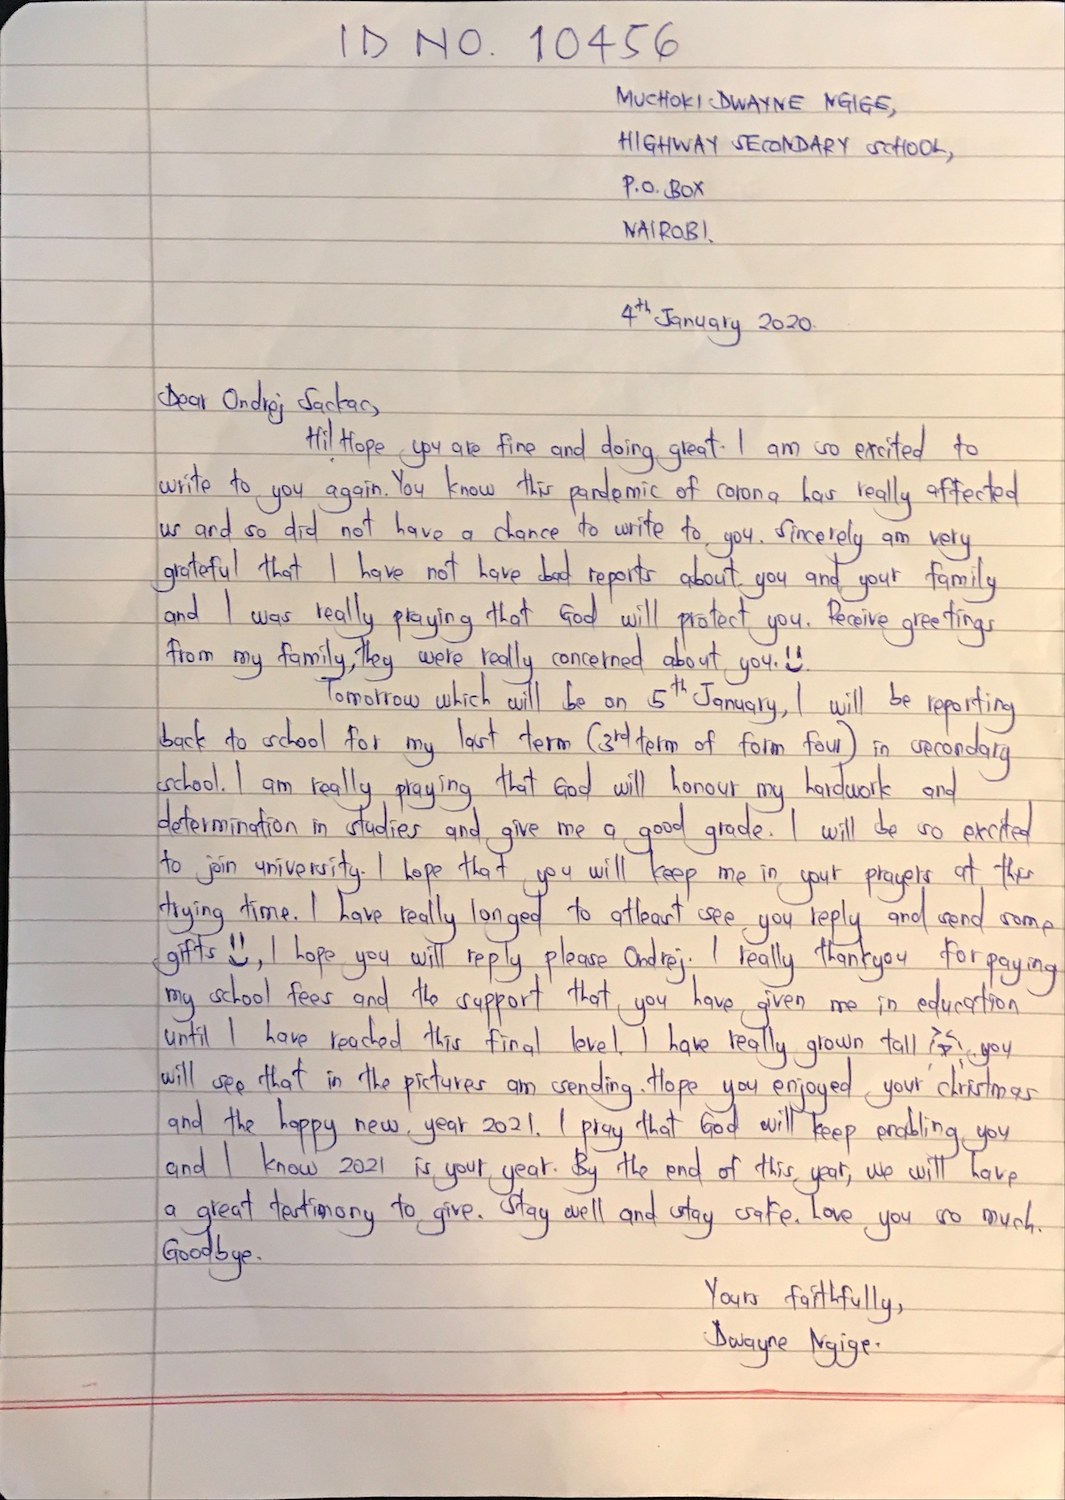 ID NO. 10456
MUCHOKI DWAYNE NGIGE,
HIGHWAY SECONDARY SCHOOL,
P.O. BOX
NAIROBI.
4th January 2020.
Dear Ondrej Sackac,
Hi! Hope you are fine and doing great. I am so excited to
write to you again. You know this pandemic of corona has really affected
us and so did not have a chance to write to you. Sincerely am very
grateful that I have not have bad reports about you and your family
and I was really praying that God will protect you. Receive greetings
from my family, they were really concerned about you.
Tomorrow which will be on 5th January, I will be reporting
back to school for my last term (3rd term of form four) in secondary
school. I am really praying that God will honour my hardwork and
determination in studies and give me a good grade. I will be so excited
to join university. I hope that you will keep me in your prayers at this
trying time. I have really longed to atleast see you reply and send some
gifts, I hope you will reply please Ondrej. I really thankyou for paying
my school fees and the support that you have given me in education
until I have reached this final level. I have really grown tall, you
will see that in the pictures am sending. Hope you enjoyed your christmas
and the happy new year 2021. I pray that God will keep enabling you
and I know 2021 is your year. By the end of this year, we will have
a great testimony to give. Stay well and stay safe. Love you so much.
Goodbye.
Yours faithfully,
Dwayne Ngige.